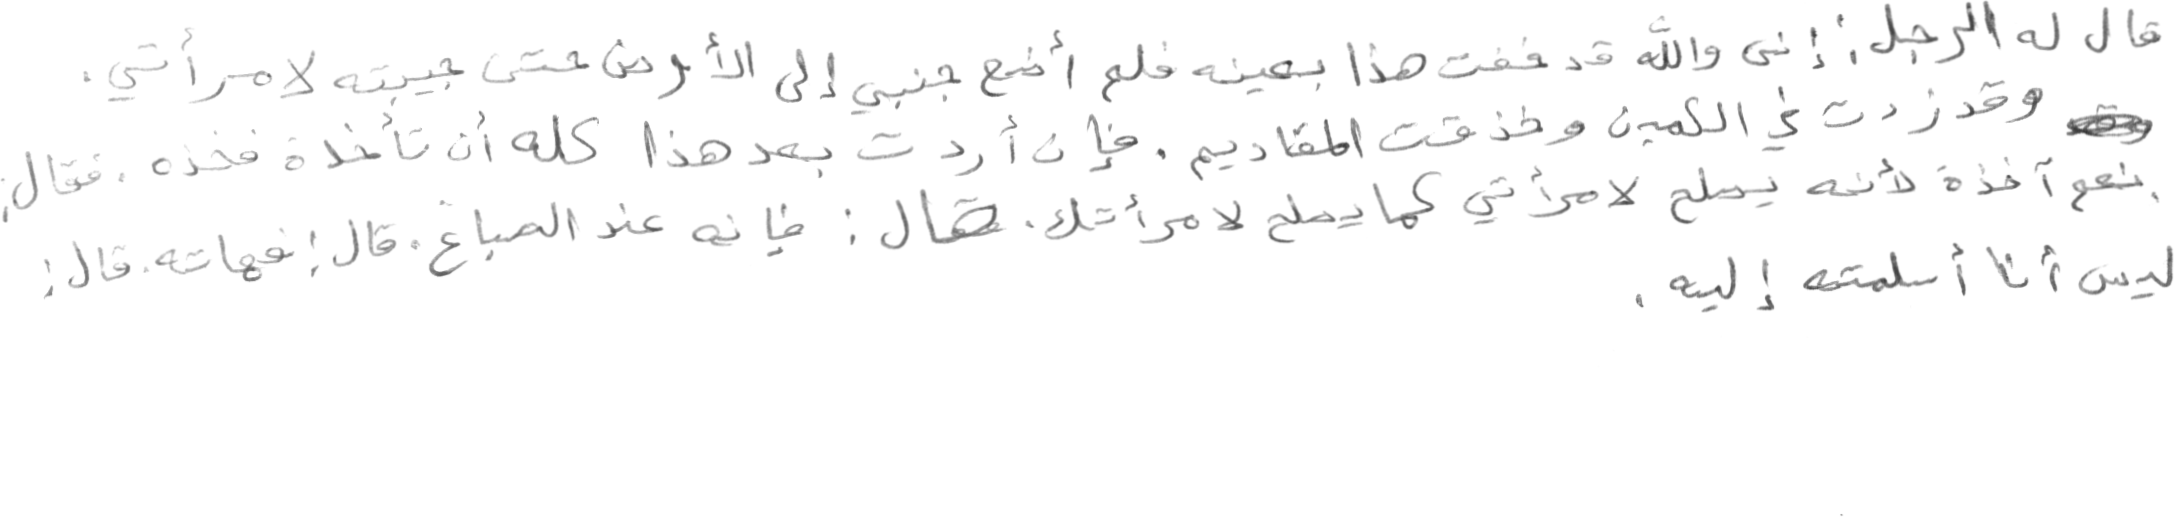 قال له الرجل: إنى والله قد خفت هذا بعينه فلم أضع جنبي إلى الأرض حتى جيبته لامرأتي.
وقد زدت في الكمين وحذفت المقاديم. فإن أردت بعد هذا كله أن تأخذة فخذه. فقال:
نعم آخذة لأنه يصلح لامرأتي كما يصلح لامرأتك. قال: فإنه عند الصباغ. قال: فهاته. قال:
ليس أنا أسلمته إليه.